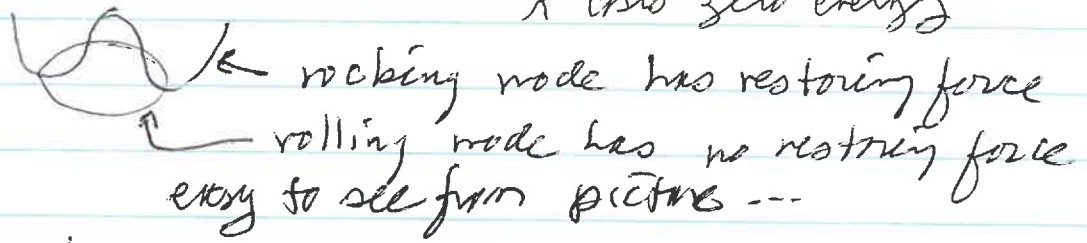 zero energy
rocking mode has restoring force
rolling mode has no restoring force
easy to see from picture ---